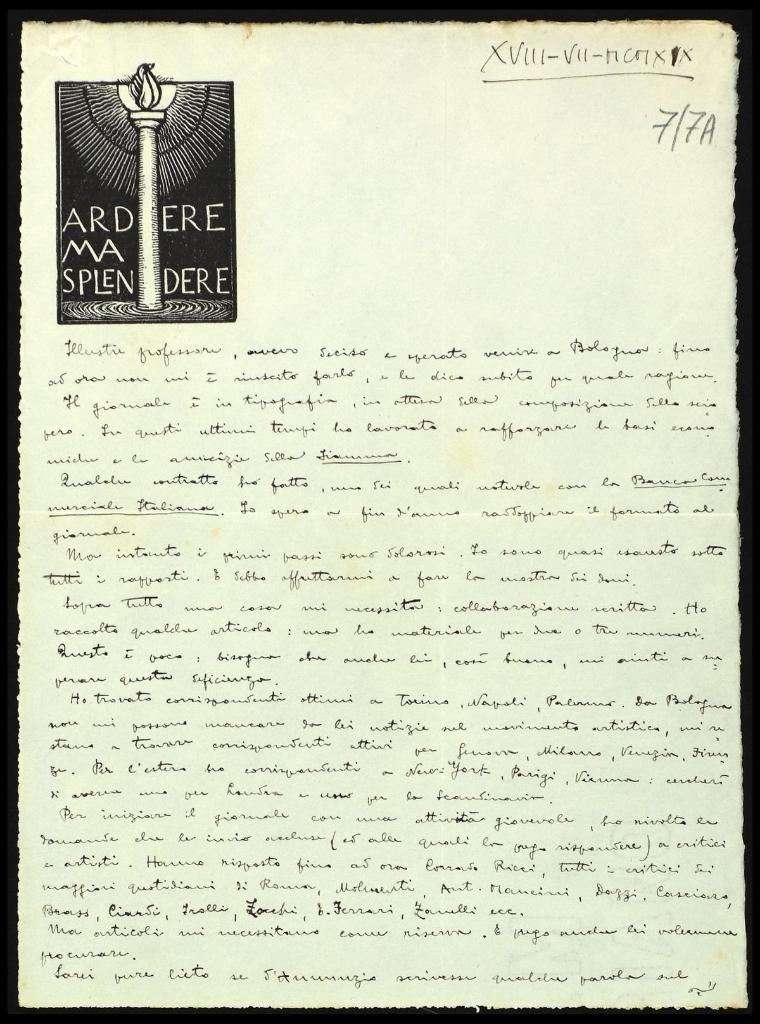 XVIII-VII-MCMXIX
7/7A
ARDERE
MA
SPLENDERE
Illustre professore, avevo deciso e sperato venire a Bologna: fino
ad ora non mi è riuscito farlo, e le dico subito per quale ragione.
Il giornale è in tipografia, in attesa della composizione dello scio
pero. In questi ultimi tempi ho lavorato a rafforzare le basi econo
miche e le amicizie della Fiamma.
Qualche contratto ho fatto, uno dei quali notevole con la Banca Com
merciale Italiana. Io spero a fin d'anno raddoppiare il formato al
giornale.
Ma intanto i primi passi sono dolorosi. Io sono quasi esausto sotto
tutti i rapporti. E debbo affrettarmi a fare la mostra dei doni.
Sopra tutto una cosa mi necessita: collaborazione scritta. Ho
raccolto qualche articolo: ma ho materiale per due o tre numeri.
Questo è poco: bisogna che anche lei, così buono, mi aiuti a su
perare questa deficienza.
Ho trovato corrispondenti ottimi a Torino, Napoli, Palermo. Da Bologna
non mi possono mancare da lei notizie sul movimento artistico, mi re
stano a trovare corrispondenti attivi per Genova, Milano, Venezia, Firen
ze. Per l'estero ho corrispondenti a New-York, Parigi, Vienna: cercherò
di averne uno per Londra e uno per la Scandinavia.
Per iniziare il giornale con una attività giovevole, ho rivolto le
domande che le invio accluse (ed alle quali la prego rispondere) a critici
e artisti. Hanno risposto fino ad ora Corrado Ricci, tutti i critici dei
maggiori quotidiani di Roma, Molmenti, Ant. Mancini, Dazzi, Casciaro,
Brass, Ciardi, Trolli, Zocchi, E. Ferrari, Zanelli ecc.
Ma articoli mi necessitano come riserva. E prego anche lei volermene
procurare.
Sarei pure lieto se d'Annunzio scrivesse qualche parola sul